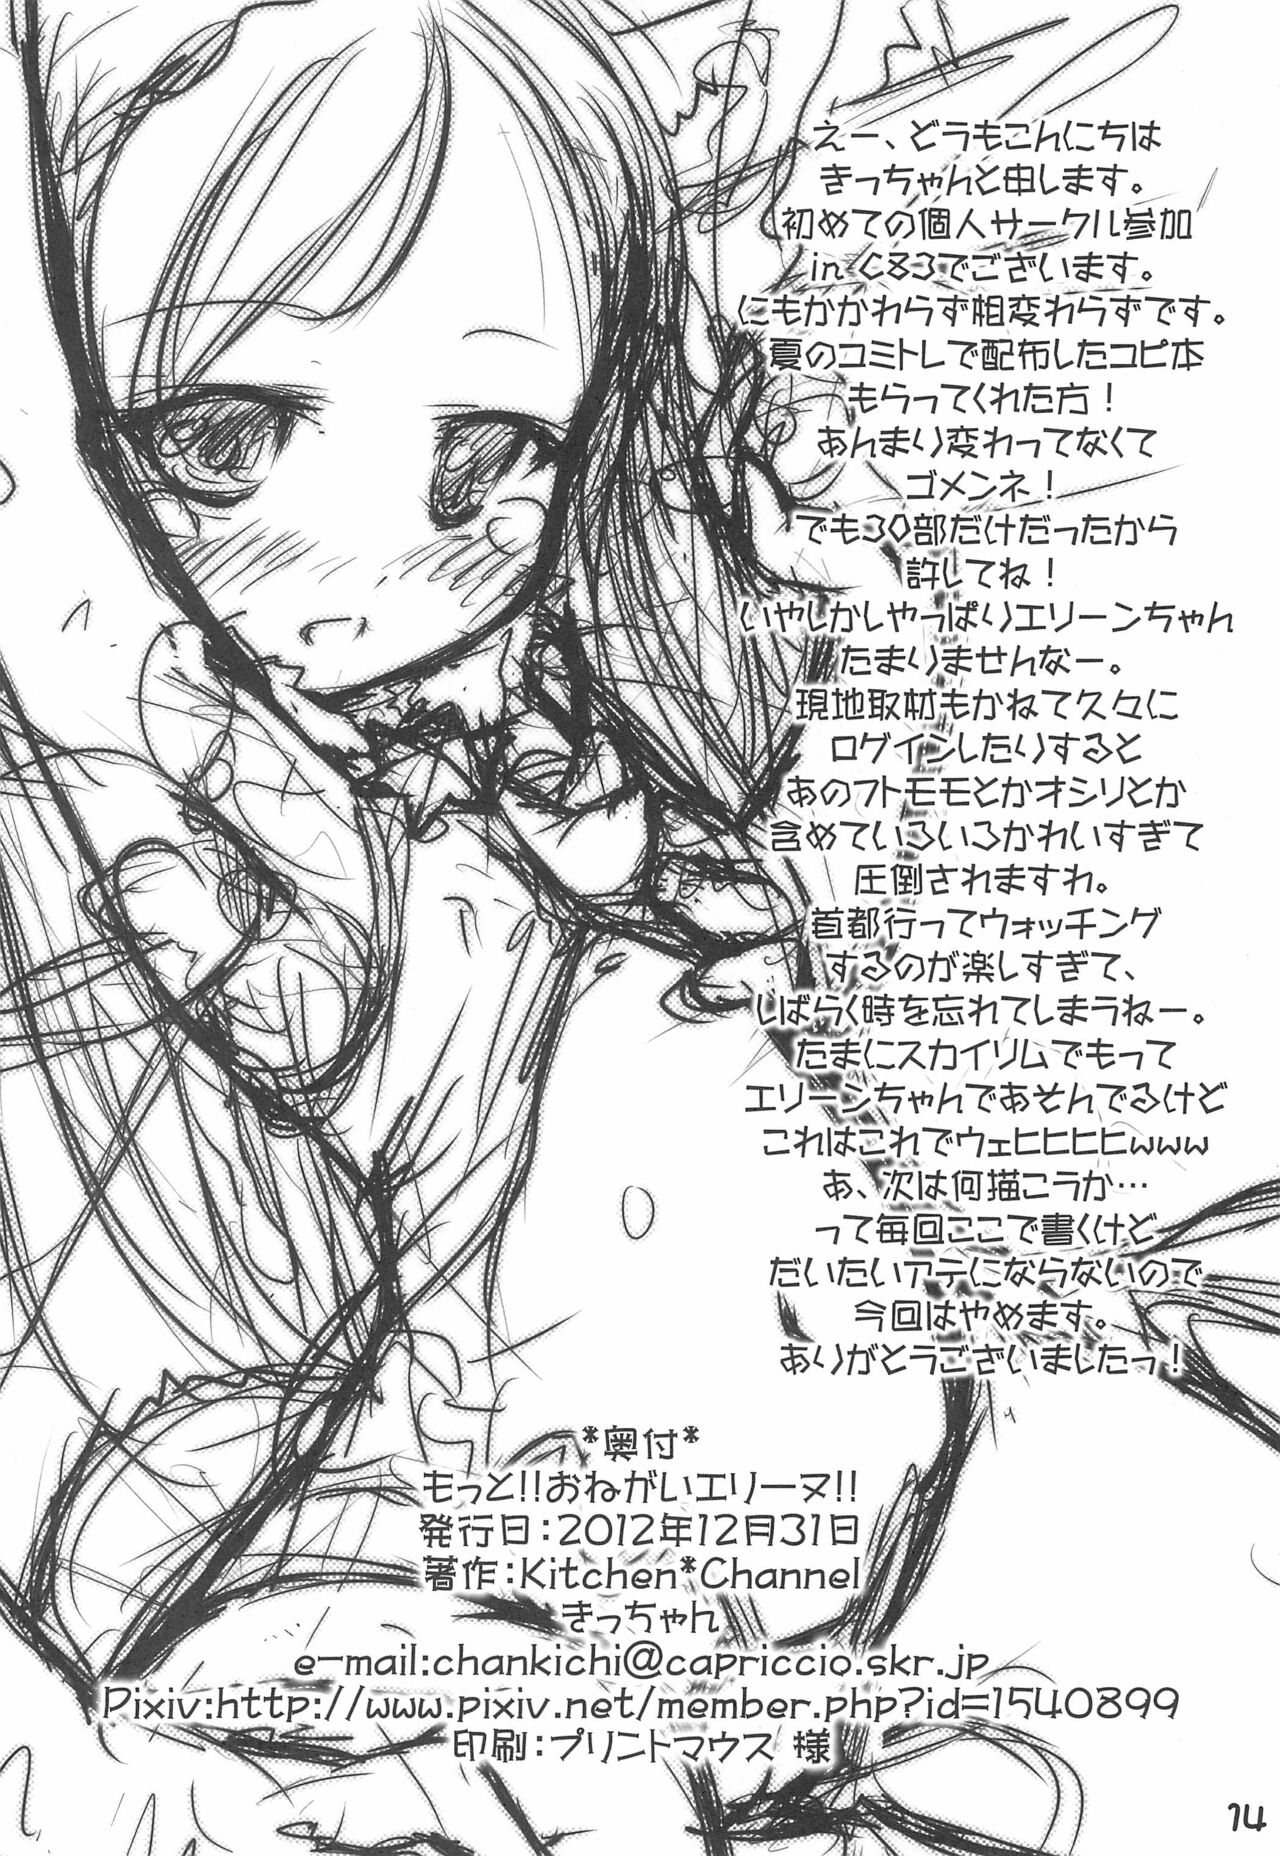 えー、どうもこんにちは
きっちゃんと申します。
初めての個人サークル参加
in C83でございます。
にもかかわらず相変わらずです。
夏のコミトレで配布したコピ本
もらってくれた方！
あんまり変わってなくて
ゴメンネ！
でも30部だけだったから
許してね！
いやしかしやっぱりエリーンちゃん
たまりませんなー。
現地取材もかねて久々に
ログインしたりすると
あのフトモモとかオシリとか
含めていろいろかわいすぎて
圧倒されますわ。
首都行ってウォッチング
するのが楽しすぎて、
しばらく時を忘れてしまうねー。
たまにスカイリムでもって
エリーンちゃんであそんでるけど
これはこれでウェヒヒヒヒwww
あ、次は何描こうか…
って毎回ここで書くけど
だいたいアテにならないので
今回はやめます。
ありがとうございましたっ！
*奥付*
もっと!!おねがいエリーヌ!!
発行日：2012年12月31日
著作：Kitchen*Channel
きっちゃん
e-mail:chankichi@capriccio.skr.jp
Pixiv:http://www.pixiv.net/member.php?id=1540899
印刷：プリントマウス 様
14